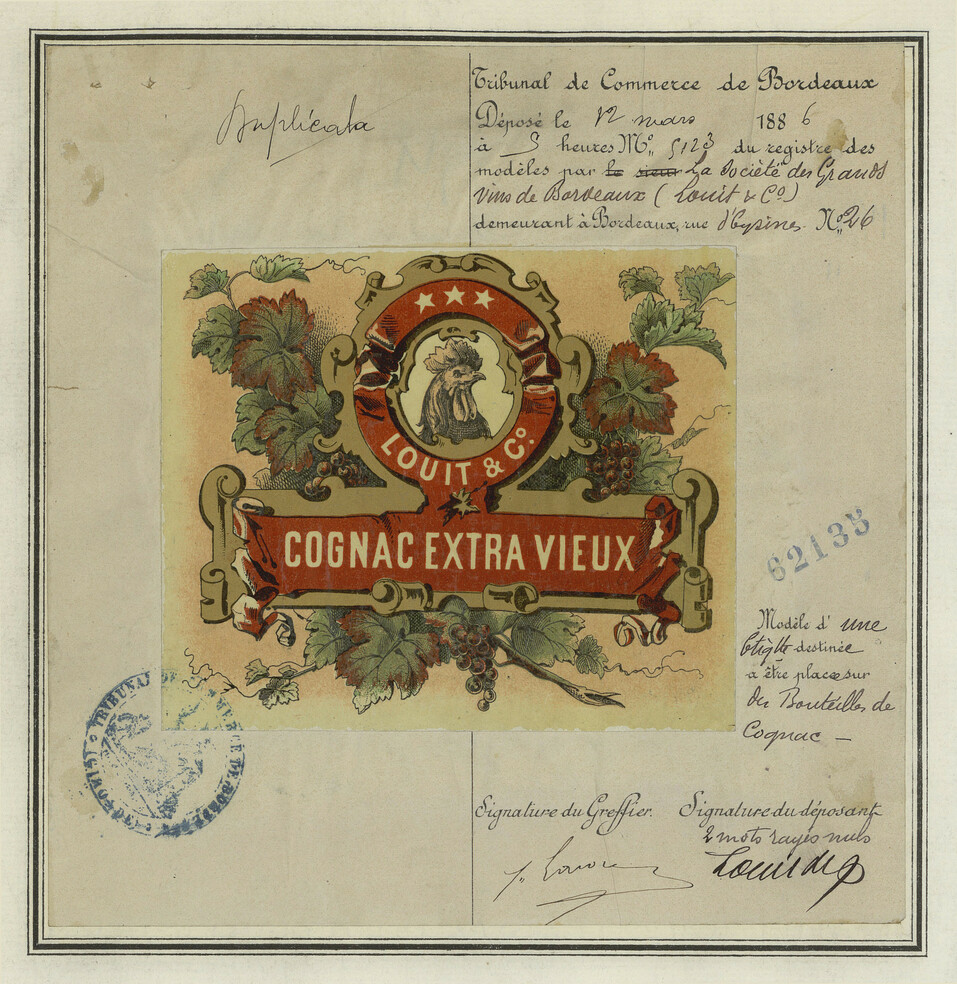 Duplicata
Tribunal de Commerce de Bordeaux
Déposé le 12 mars 1886
à 3 heures No. 5123 du registre des
modèles par le sieur La Société des Grands
Vins de Bordeaux (Louit & Co)
demeurant à Bordeaux, rue d'Eysines No. 26
★★★
LOUIT & Co.
COGNAC EXTRA VIEUX
62135
Modèle d'une
étiqtte destinée
à être placée sur
des Bouteilles de
Cognac —
TRIBUNAL DE COMMERCE DE BORDEAUX
Signature du Greffier. Signature du déposant
2 mots rayés nuls
Louit & Co